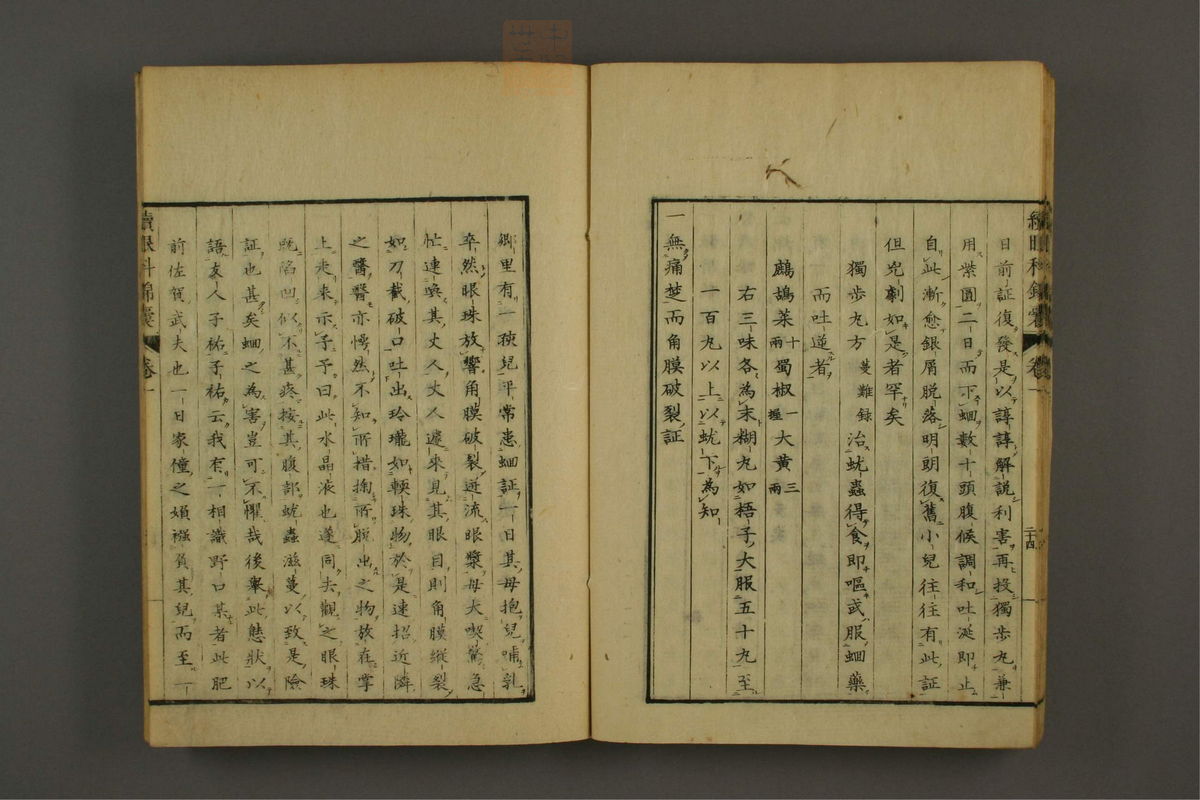 續眼科錦囊 卷一 二十四
日前証復發是以諄諄解說利害再投獨步丸兼
用紫圓二日而下蛔數十頭腹候調和吐涎即止
自此漸愈銀屑脫落明朗復舊小兒往往有此証
但兇劇如是者罕矣
獨步丸方 蔓難錄 治蚘蟲得食即嘔或服蛔藥
而吐逆者
鷓鴣菜十兩 蜀椒一握 大黃三兩
右三味各為末糊丸如梧子大服五十丸至
一百丸以上以蚘下為知
一無痛楚而角膜破裂証
鄉里有一孩兒平常患蛔証一日其母抱兒哺乳
卒然眼珠放響角膜破裂迸流眼漿母大喫驚急
忙連喚其丈人丈人遽來見其眼目則角膜縱裂
如刀截破口吐出玲瓏如輭珠物於是速招近隣
之醫醫亦愕然不知所措掬所脫出之物放在掌
上走來示予予曰此水晶液也遂同去觀之眼珠
既陷凹似不甚疼按其腹部蚘蟲滋蔓以致是險
証也甚矣蛔之為害豈可不懼哉後舉此態狀以
語友人子祐子祐云我有一相識野口某者此肥
前佐賀武夫也一日家僮之嫏襁負其兒而至一
續眼科錦囊 卷一